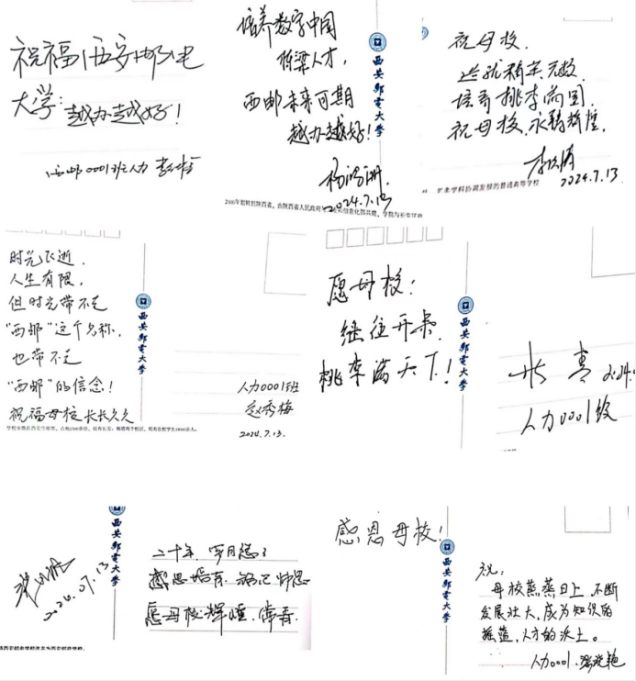 祝福西安邮电
大学：越办越好！
西邮0001班人力
培养数字中国
栋梁人才，
西邮未来可期
越办越好！
2024.7.13
西安邮电大学
祝母校，
造就精英无数
培育桃李满园，
祝母校永铸辉煌
2024.7.13
时光飞逝，
人生有限，
但时光带不走
"西邮"这个名称，
也带不走
"西邮"的信念！
祝福母校长长久久
西安邮电大学
人力0001班
赵秀梅
2024.7.13.
愿母校：
继往开来，
桃李满天下！
西安邮电大学
人力0001级
2024.07.13
西安邮电大学
二十年，岁月悠悠
感恩培育，铭记师恩
愿母校辉煌
感恩母校！
西安邮电大学
祝：
母校蒸蒸日上，不断
发展壮大，成为知识的
摇篮，人才的沃土。
人力0001